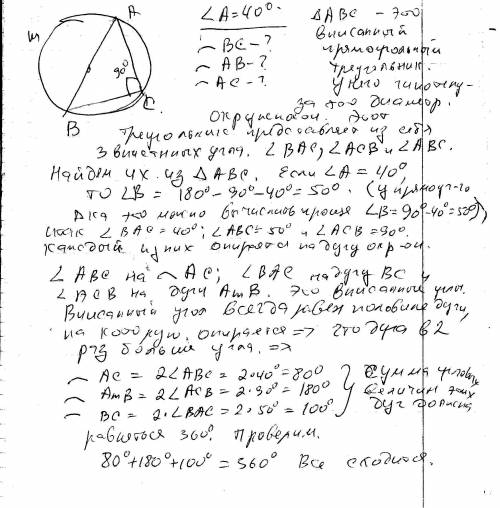 ∠A=40° ΔABC - это
m A
⌢ BC - ? вписанный
90° ⌢ AB - ? прямоугольный
⌢ AC - ? треугольник.
C У него гипотену-
B за это диаметр.
окружности. Этот
треугольник представляет из себя
3 вписанных угла. ∠BAC, ∠ACB и ∠ABC.
Найдем их из ΔABC. Если ∠A = 40°
то ∠B = 180° - 90° - 40° = 50°. (у прямоуг-го
Δка это можно вычислить проще ∠B = 90° - 40° = 50°)
итак ∠BAC = 40°; ∠ABC = 50° и ∠ACB = 90°.
Каждый из них опирается на дугу окр-и.
∠ABC на ⌢ AC; ∠BAC на дугу BC и
∠ACB на дуги AmB. Это вписанный углы.
Вписанный угол всегда равен половине дуги,
на которую опирается => что дуга в 2
раз больше угла. =>
⌢ AC = 2∠ABC = 2·40° = 80° } Сумма угловых
⌢ AmB = 2∠ACB = 2·90° = 180° величин этих
⌢ BC = 2·∠BAC = 2·50° = 100° дуг должна
равняться 360°. Проверим.
80° + 180° + 100° = 360° Все сходится.